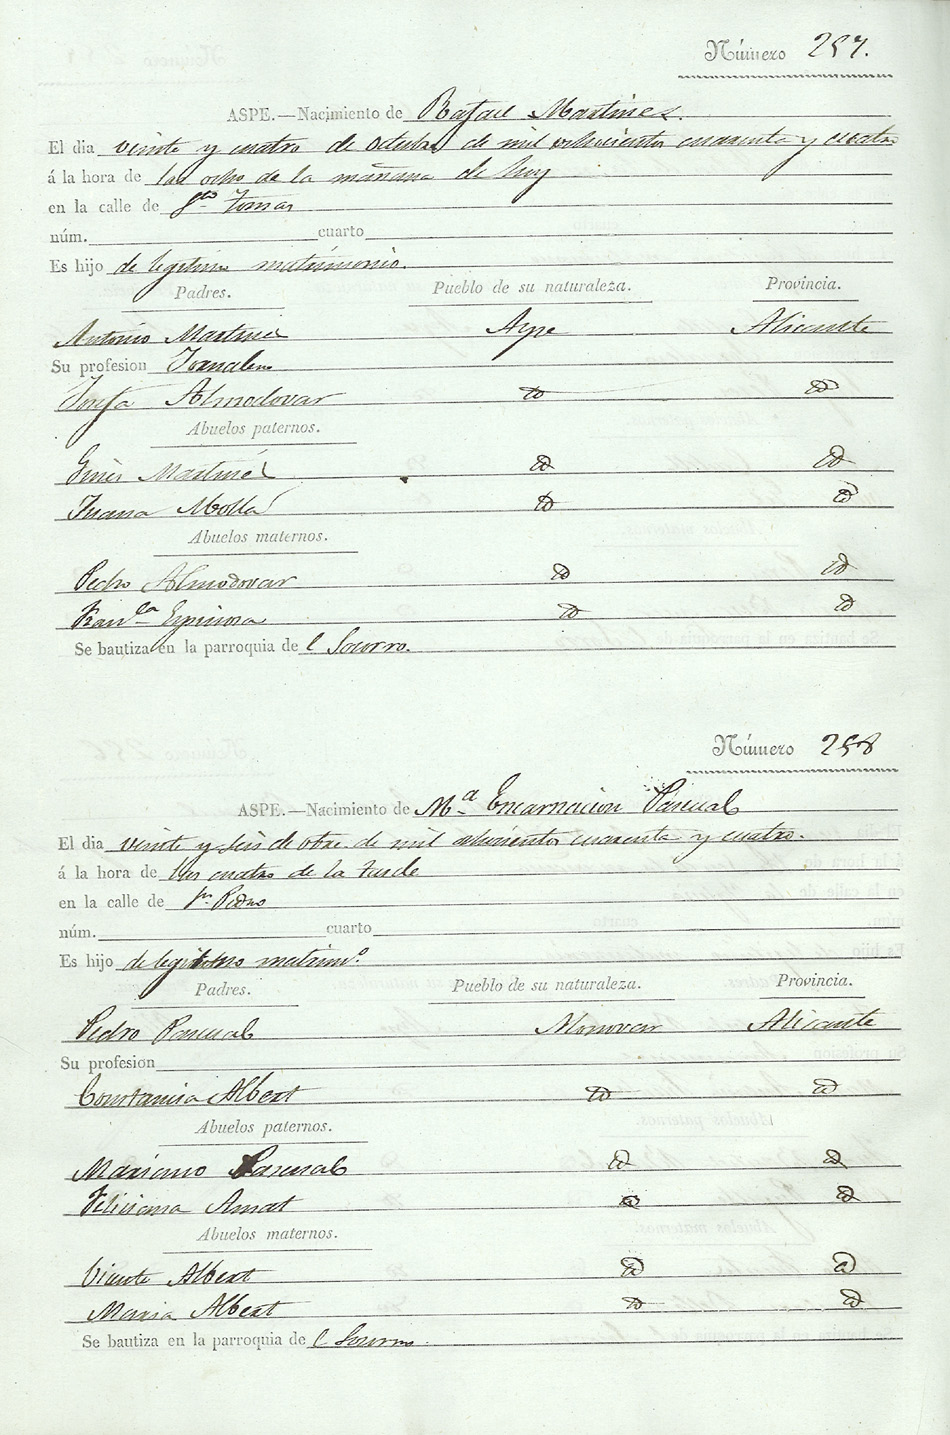 Número 257.
ASPE.—Nacimiento de Rafael Martinez.
El dia veinte y cuatro de octubre de mil ochocientos cuarenta y cuatro
á la hora de las ocho de la mañana de hoy
en la calle de Sto Tomas
núm. cuarto
Es hijo de legitimo matrimonio.
Padres. Pueblo de su naturaleza. Provincia.
Antonio Martinez Aspe Alicante
Su profesion Jornalero
Josefa Almodovar id id
Abuelos paternos.
Ginés Martinez id id
Juana Mollá id id
Abuelos maternos.
Pedro Almodovar id id
Franca Espinosa id id
Se bautiza en la parroquia de l Socorro.
Número 258
ASPE.—Nacimiento de Ma Encarnacion Pascual
El dia veinte y seis de obre. de mil ochocientos cuarenta y cuatro.
á la hora de las cuatro de la tarde
en la calle de Sn Pedro
núm. cuarto
Es hijo de legitimo matrimo.
Padres. Pueblo de su naturaleza. Provincia.
Pedro Pascual Monovar Alicante
Su profesion
Constancia Albert id id
Abuelos paternos.
Mariano Pascual id id
Feliciana Amat id id
Abuelos maternos.
Vicente Albert id id
Maria Albert id id
Se bautiza en la parroquia de l Socorro.